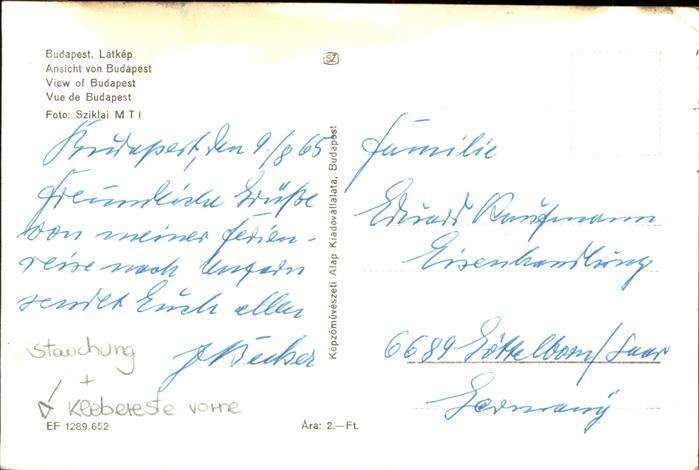 Budapest. Látkép
Ansicht von Budapest
View of Budapest
Vue de Budapest
Foto: Sziklai MTI
Budapest, den 9./8 65
Freundliche Grüße
von meiner Ferien-
reise nach Ungarn
sendet Euch allen
J Becker
stauchung
+
Klebereste vorne
EF 1289.652
Ára: 2.—Ft.
SZ
Képzőművészeti Alap Kiadóvállalata, Budapest
Familie
Eduard Kaufmann
Eisenhandlung
6689 Göttelborn/Saar
Germany